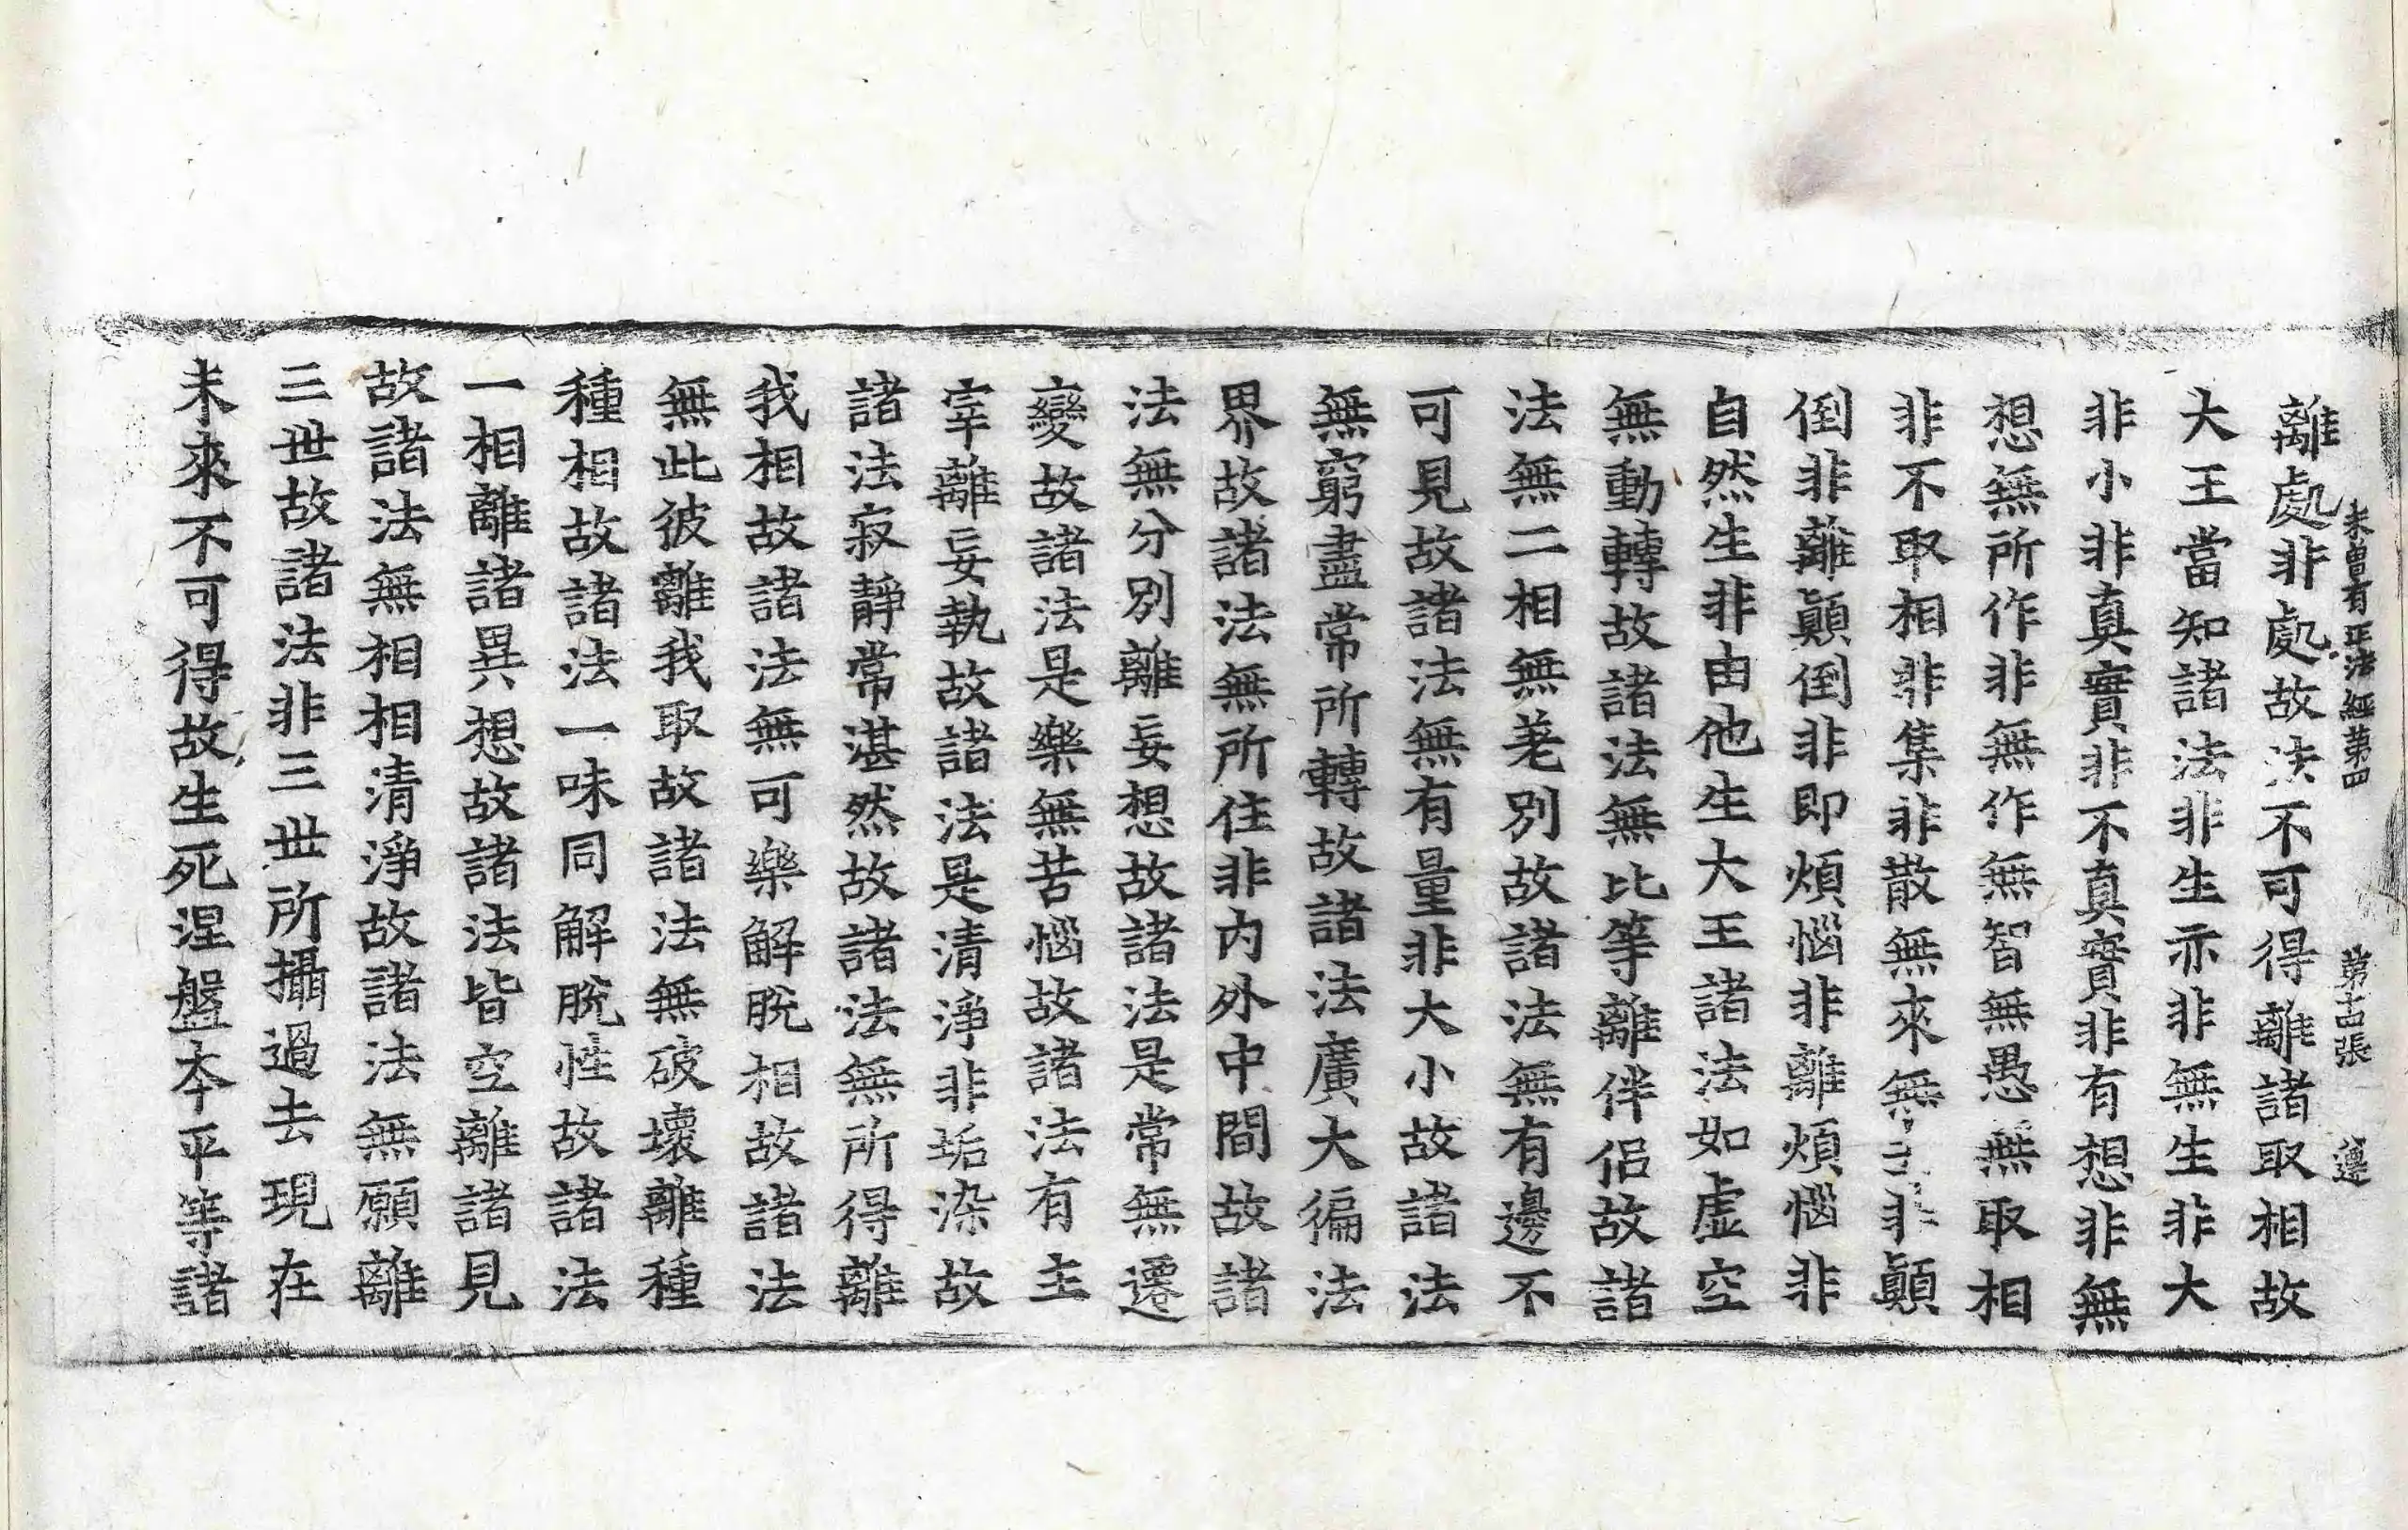 離處非處故法不可得離諸取相故
未曾有正法經第四 第古張 遵
大王當知諸法非生亦非無生非大
非小非真實非不真實非有想非無
想無所作非無作無智無愚無取相
非不取相非集非散無來無去非顚
倒非離顚倒非即煩惱非離煩惱非
自然生非由他生大王諸法如虛空
無動轉故諸法無比等離伴侶故諸
法無二相無差別故諸法無有邊不
可見故諸法無有量非大小故諸法
無窮盡常所轉故諸法廣大徧法
界故諸法無所住非內外中間故諸
法無分別離妄想故諸法是常無遷
變故諸法是樂無苦惱故諸法有主
宰離妄執故諸法是清淨非垢染故
諸法寂靜常湛然故諸法無所得離
我相故諸法無可樂解脫相故諸法
無此彼離我取故諸法無破壞離種
種相故諸法一味同解脫性故諸法
一相離諸異想故諸法皆空離諸見
故諸法無相相清淨故諸法無願離
三世故諸法非三世所攝過去現在
未來不可得故生死涅盤本平等諸